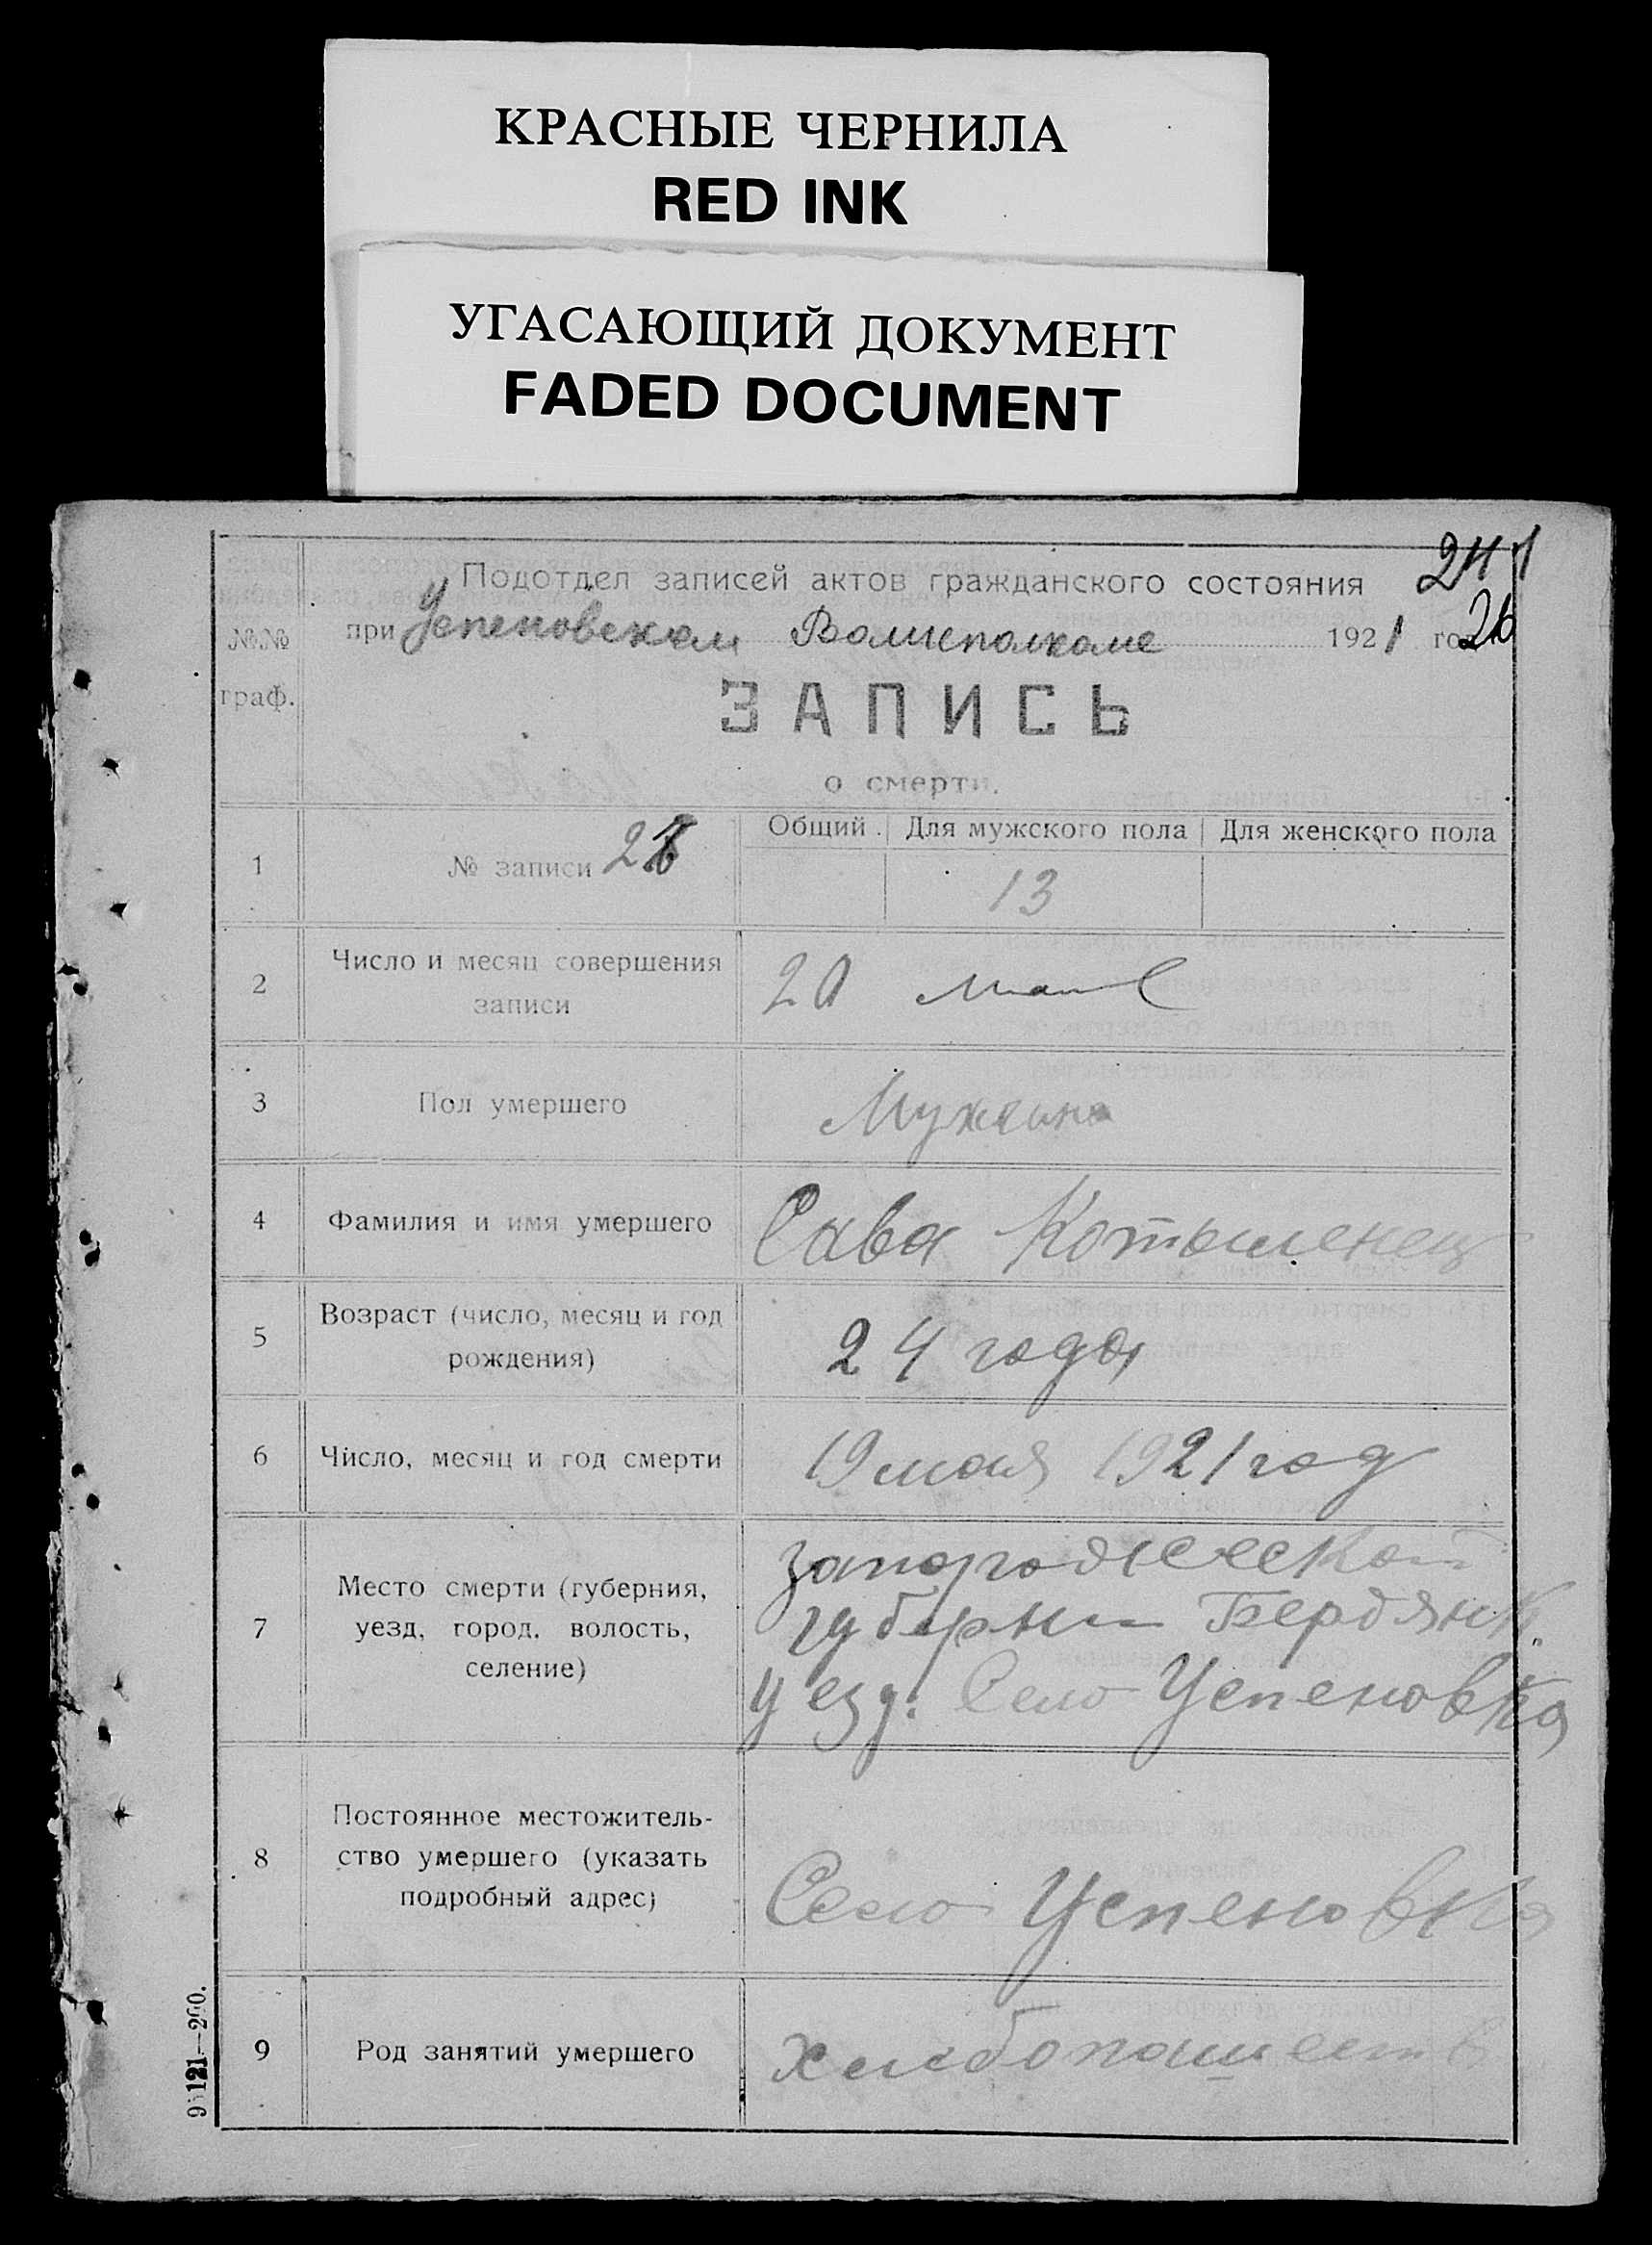 КРАСНЫЕ ЧЕРНИЛА
RED INK
УГАСАЮЩИЙ ДОКУМЕНТ
FADED DOCUMENT
Подотдел записей актов гражданского состояния
при Успеновском Волисполкоме 1921 го 26
№№
граф.
ЗАПИСЬ
о смерти.
1 № записи
Общий Для мужского пола Для женского пола
13
2 Число и месяц совершения
записи
20 мая
3 Пол умершего
4 Фамилия и имя умершего Сава Котышенец
5 Возраст (число, месяц и год
рождения)
24 года
6 Число, месяц и год смерти 19 мая 1921 год
7 Место смерти (губерния,
уезд, город, волость,
селение)
губерни Бердянск.
уезд. Село Успеновка
8 Постоянное местожитель-
ство умершего (указать
подробный адрес)
Село Успеновка
9 Род занятий умершего